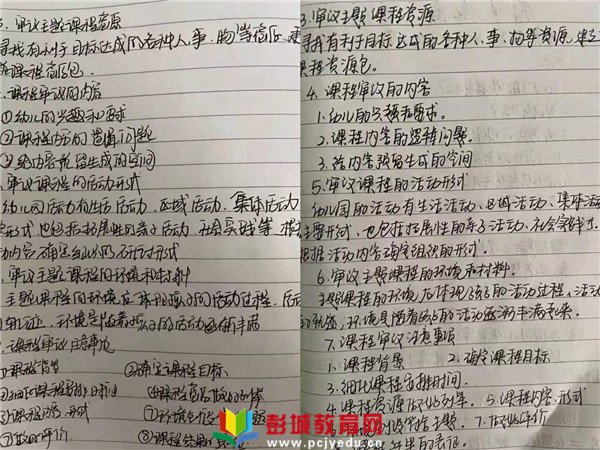 3. 审议主题课程资源
寻找有利于目标达成的各种人、事、物等资源,建
课程资源包。
课程审议的内容
①幼儿的兴趣和需求
②课程内容的选择问题
③给内容预留生成的空间
审议课程的活动形式
幼儿园活动有生活活动、区域活动、集体活动
形式,也包括拓展性的亲子活动、社会实践等,根
动内容确定组织的形式
审议主题课程的环境和材料
主题课程的环境应体现孩子的活动过程,活
轨迹,环境是随着孩子的活动逐渐丰满
课程审议注意事项
①课程背景 ②确定课程目标
③细化课程安排时间 ④课程资源
⑤课程内容、形式
⑦
评价 ⑧课程
3. 审议主题课程资源
寻找有利于目标达成的各种人、事、物等资源,建立
课程资源包。
4. 课程审议的内容
1. 幼儿的兴趣和需求。
2. 课程内容的选择问题。
3. 给内容预留生成的空间
5. 审议课程的活动形式
幼儿园的活动有生活活动、区域活动、集体活动
主要形式,也包括拓展性的亲子活动、社会实践等,
根据活动内容确定组织的形式。
6. 审议主题课程的环境和材料。
主题课程的环境应体现孩子的活动过程,活动
的轨迹,环境是随着孩子的活动逐渐丰满起来。
7. 课程审议注意事项
1. 课程背景 2. 确定课程目标
3. 细化课程安排时间.
4. 课程资源 5. 课程内容、形式
主题. 7. 评价
彭城教育网
www.pcjyedu.cn